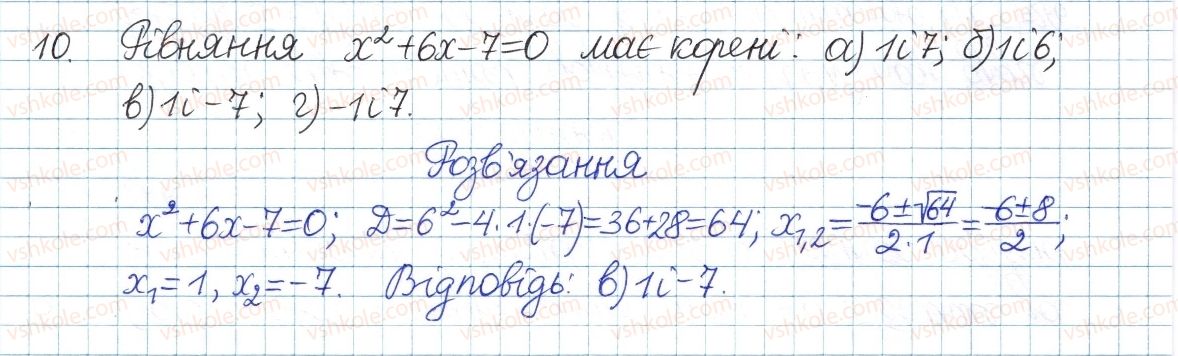 10. Рівняння x²+6x-7=0 має корені: а) 1 і 7; б) 1 і 6;
в) 1 і -7; г) -1 і 7.
Розв'язання
x²+6x-7=0; Д=6²-4·1·(-7)=36+28=64; x₁,₂=(-6±√64)/(2·1)=(-6±8)/2;
x₁=1, x₂=-7. Відповідь: в) 1 і -7.